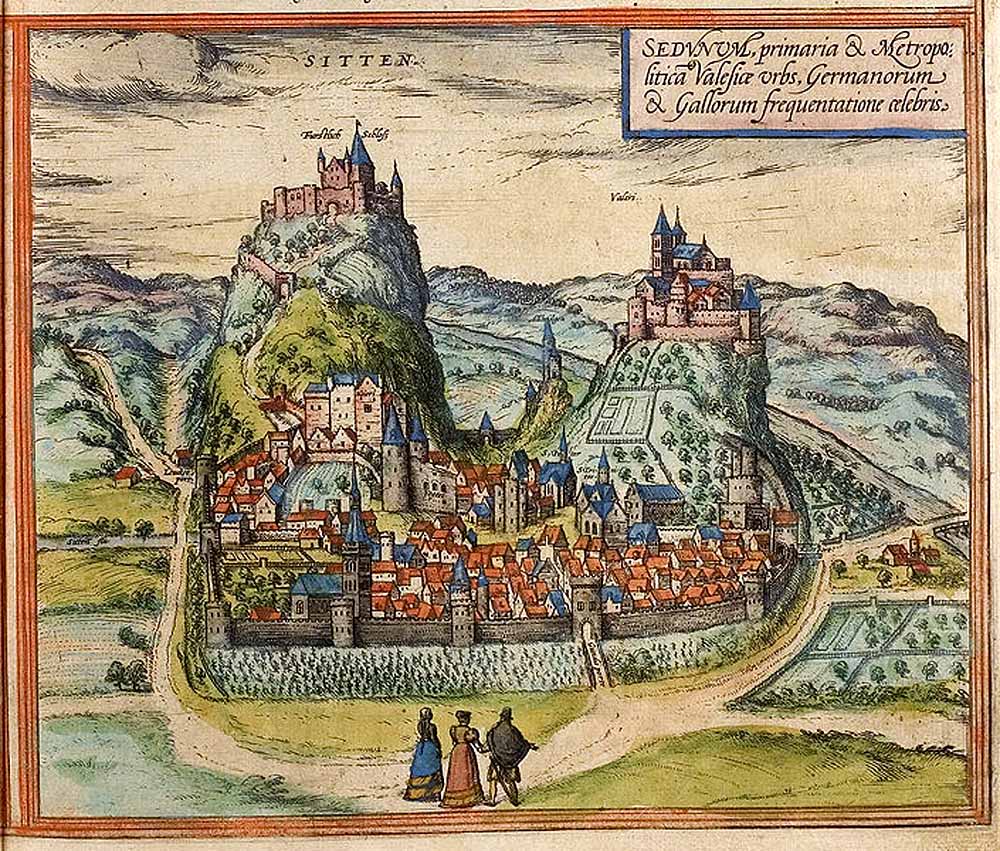 SITTEN.
SEDVNVM, primaria & Metropo:
litica Valesiæ vrbs, Germanorum
& Gallorum frequentatione celebris.
Furstlich Schloss
Valeri.